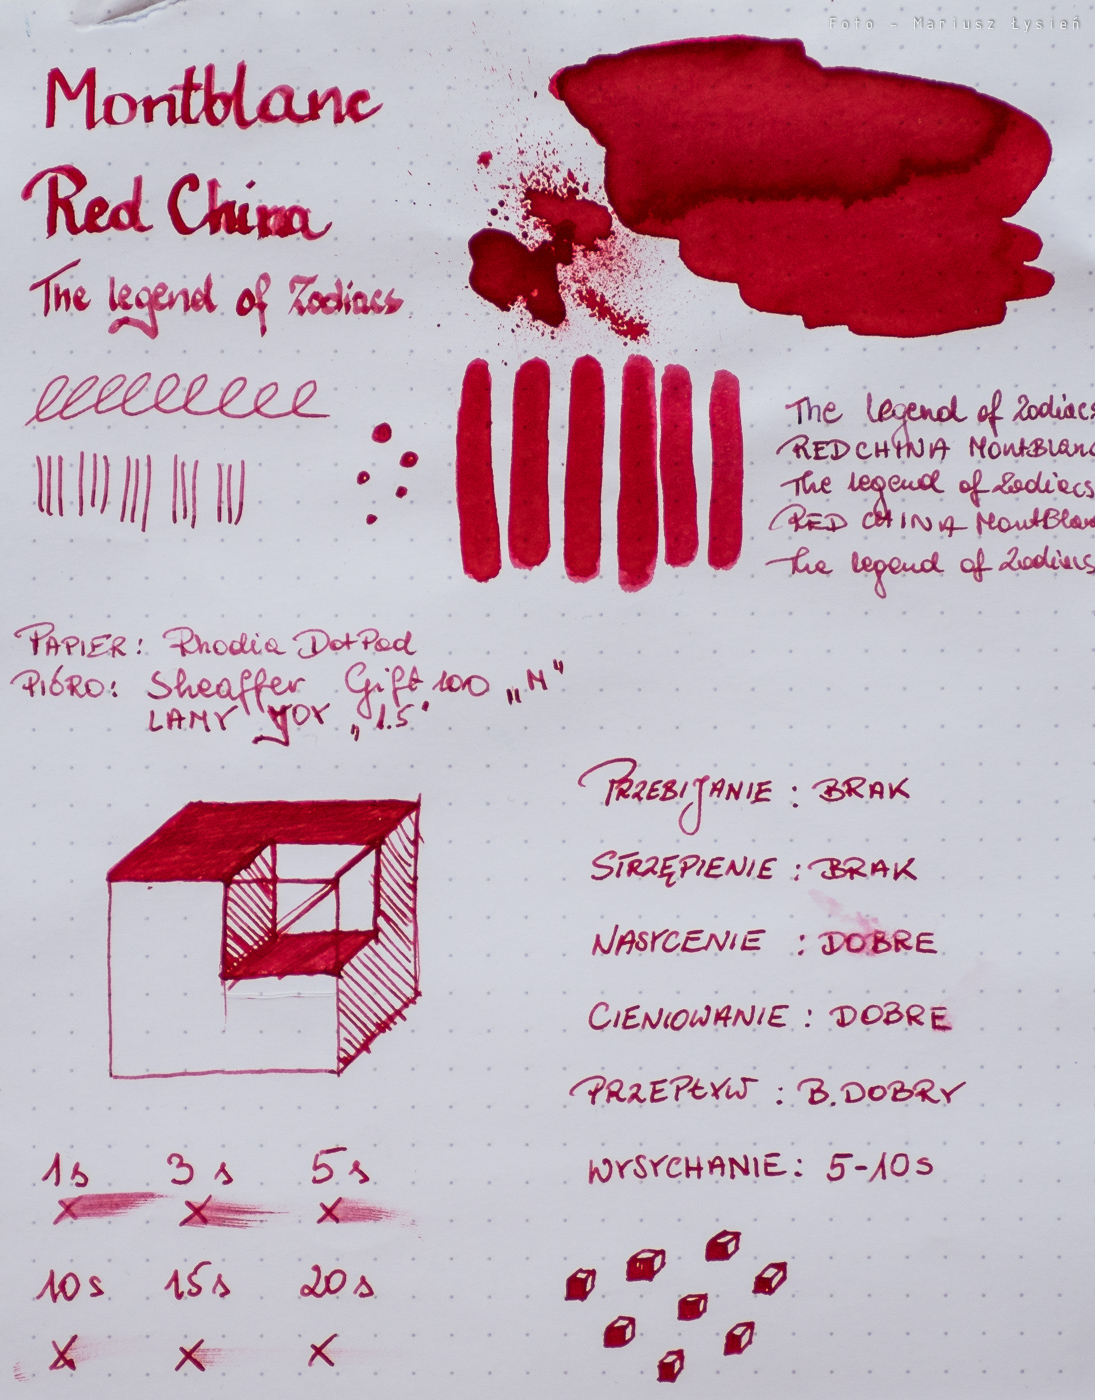 Foto - Mariusz Łysień
Montblanc
Red China
The legend of Zodiacs
The legend of Zodiacs
RED CHINA MontBlanc
The legend of Zodiacs
RED CHINA MontBlan
The legend of Zodiacs
PAPIER: Rhodia DotPad
PIÓRO: Sheaffer Gift 100 „M"
LAMY JOY „1.5"
PRZEBIJANIE : BRAK
STRZĘPIENIE : BRAK
NASYCENIE : DOBRE
CIENIOWANIE : DOBRE
PRZEPŁYW : B.DOBRY
WYSYCHANIE: 5-10s
1s 3s 5s
10s 15s 20s